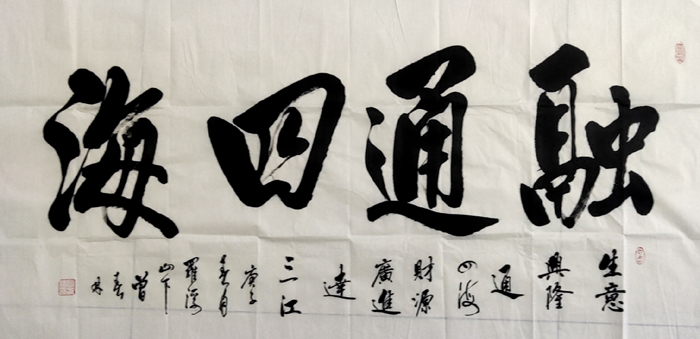 融通四海
生意
興隆
通
四海
財源
廣進
達
三江
庚子
春月
羅浮
山下
曾
春